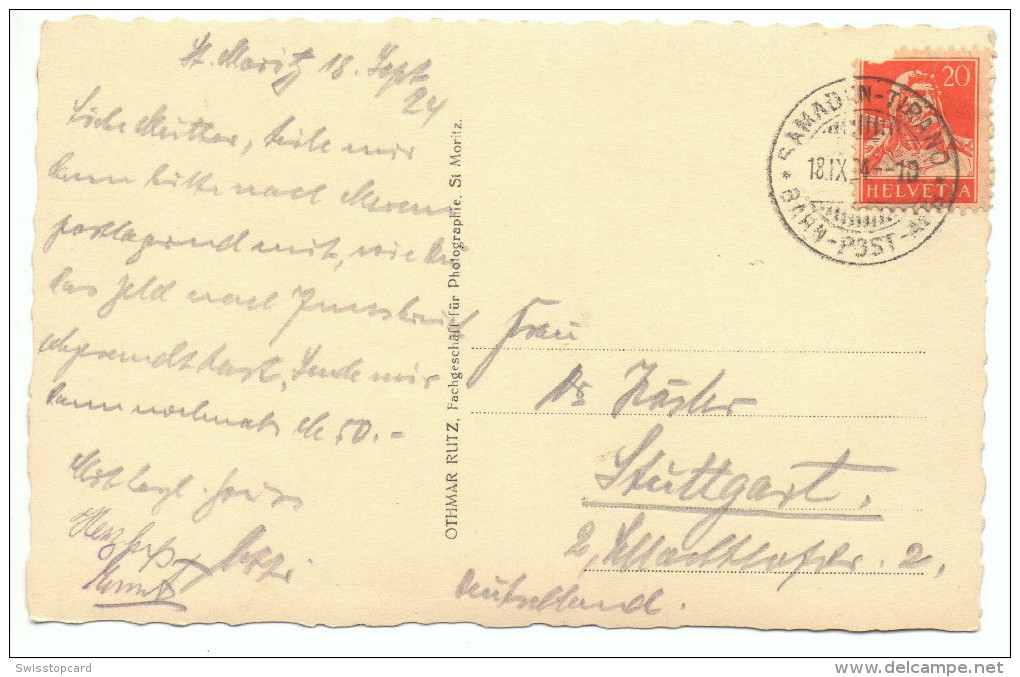 St. Moritz 18. Sept
24
Liebe Mutter, teile mir
dann bitte nach Meran
postlagernd mit, wie Du
das Geld nach Innsbruck
hast, Sende mir
dann nochmals 50.-
Mit herzl.
OTHMAR RUTZ, Fachgeschäft für Photographie. St Moritz.
20
HELVETIA
SAMADEN-TIRANO
18.IX.24.-10
BAHN-POST-AMB
Frau
Dr
Stuttgart,
2, 2,
Deutschland.
Swisstopcard
www.delcampe.net